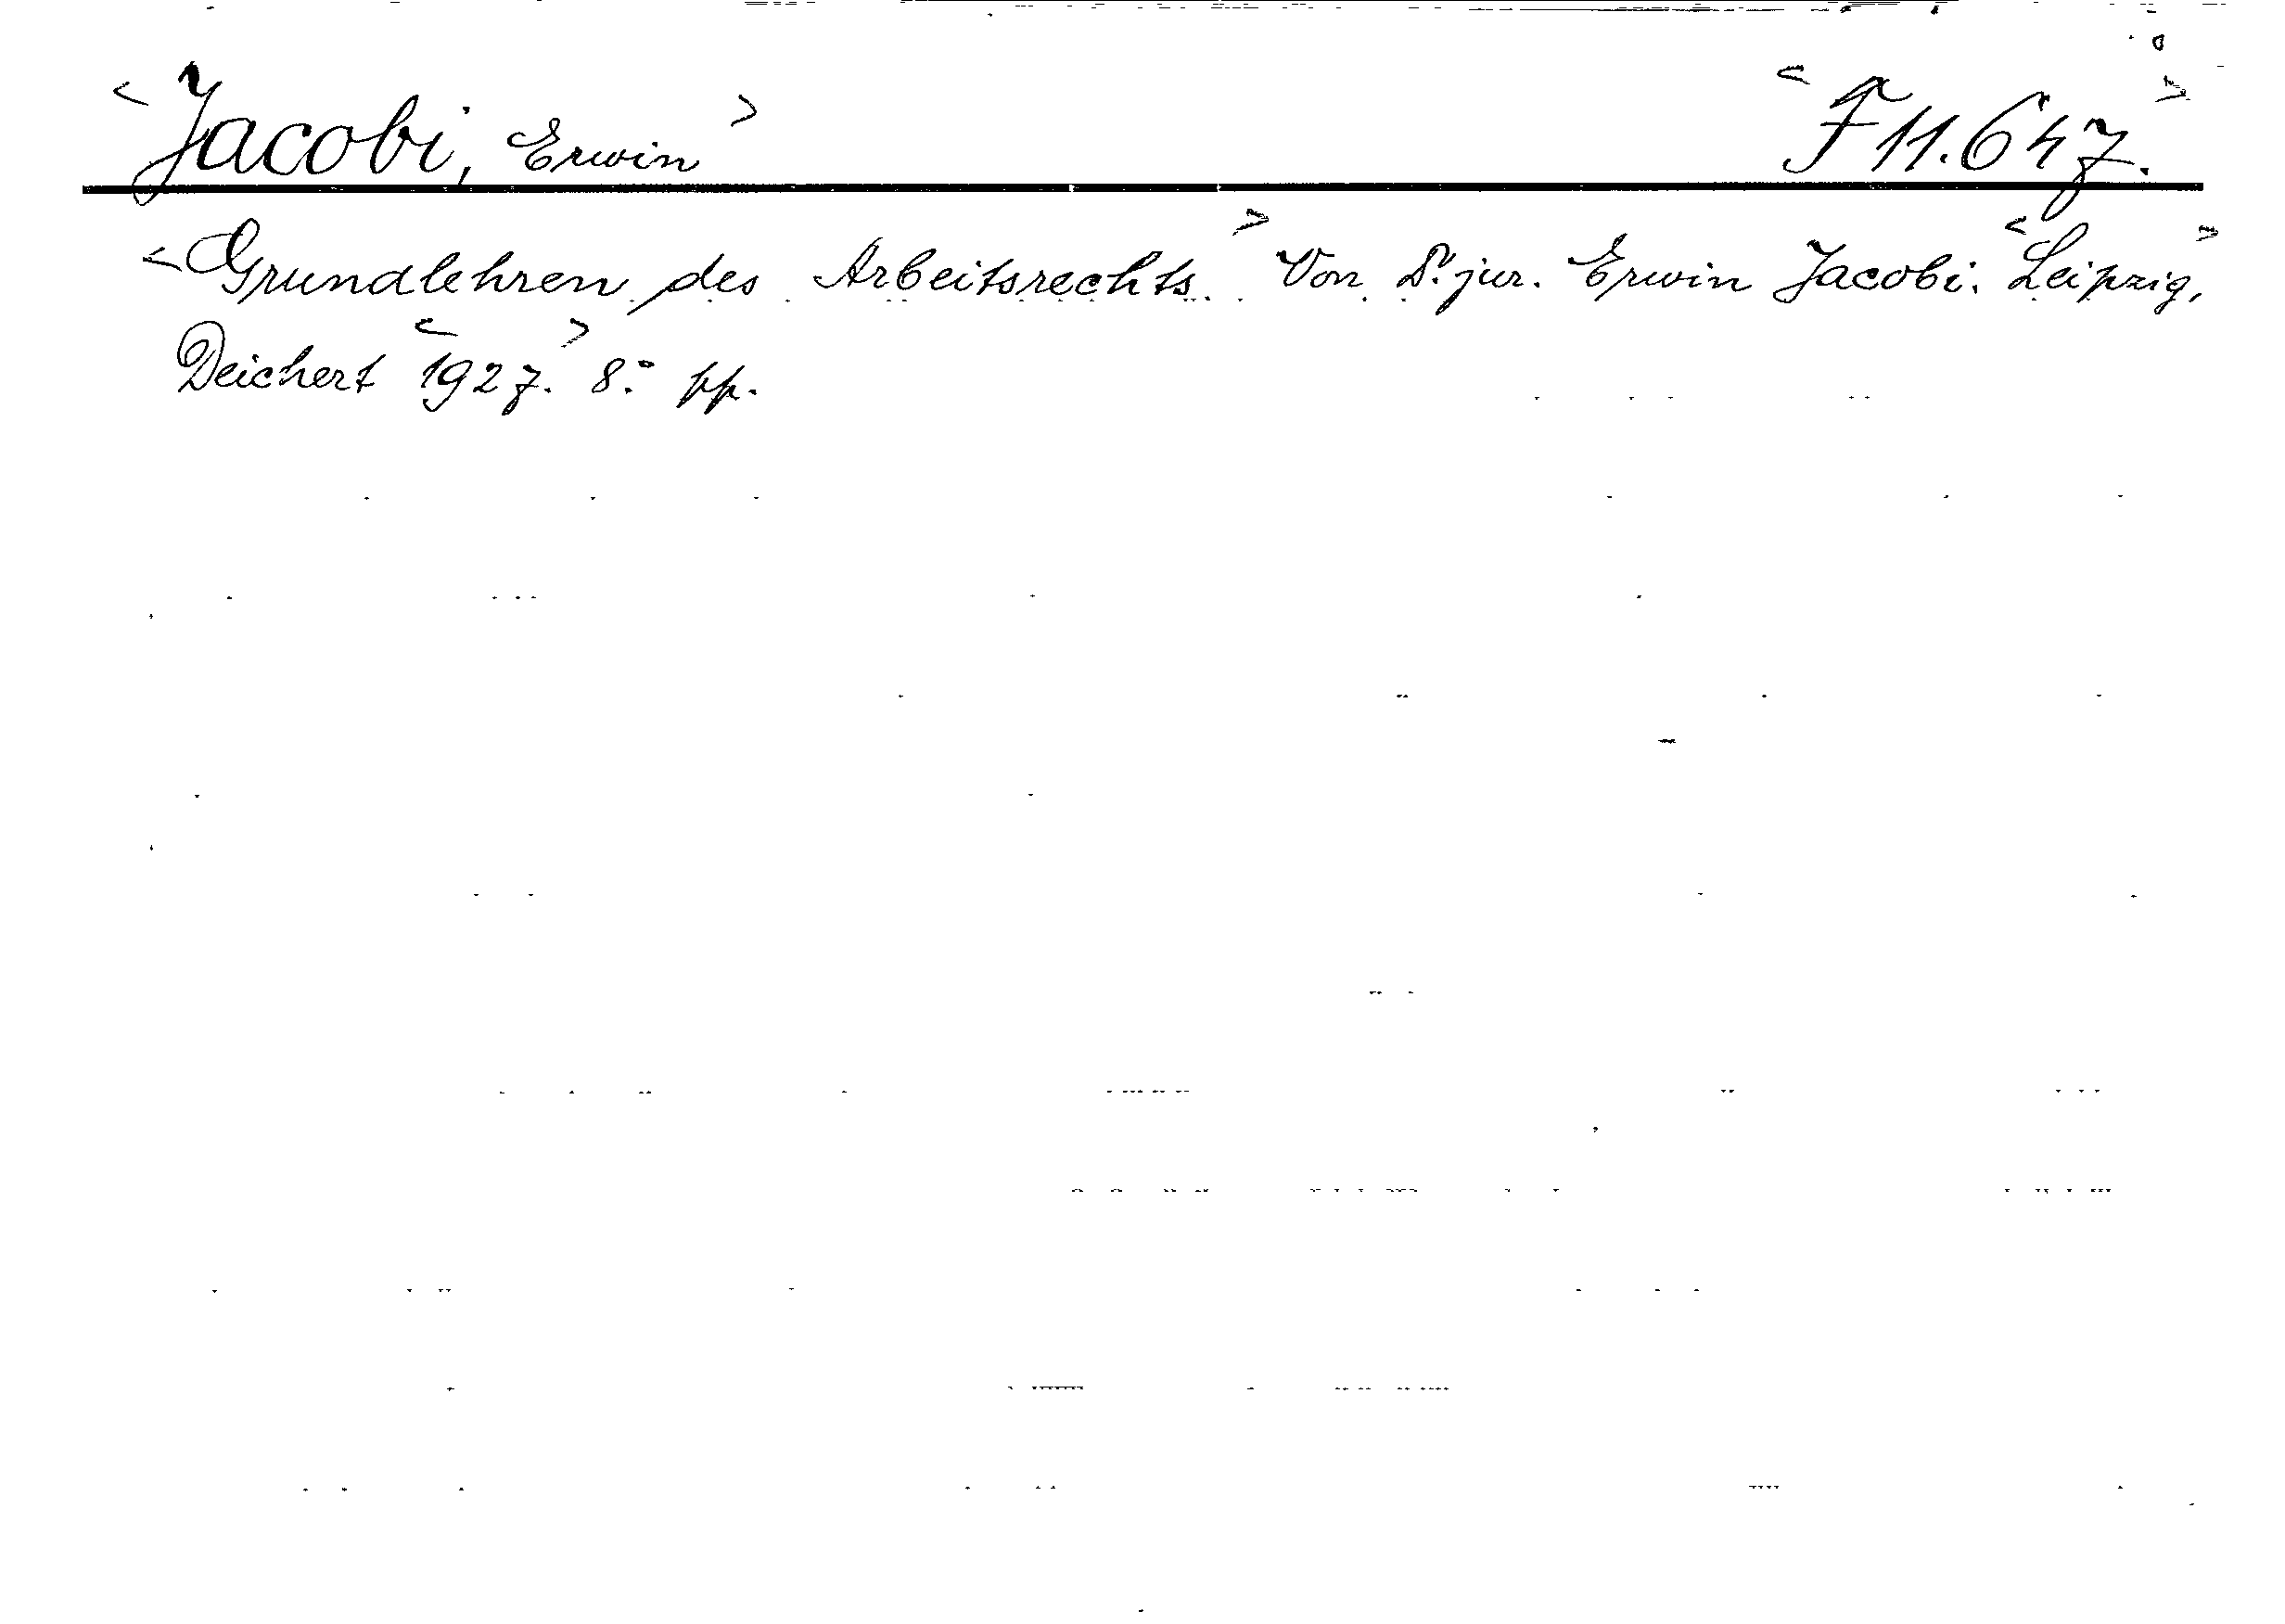 <Jacobi, Erwin> <F 11.647.>
<Grundlehren des Arbeitsrechts.> Von Dr. jur. Erwin Jacobi. <Leipzig,>
Deichert <1927.> 8.º pp.